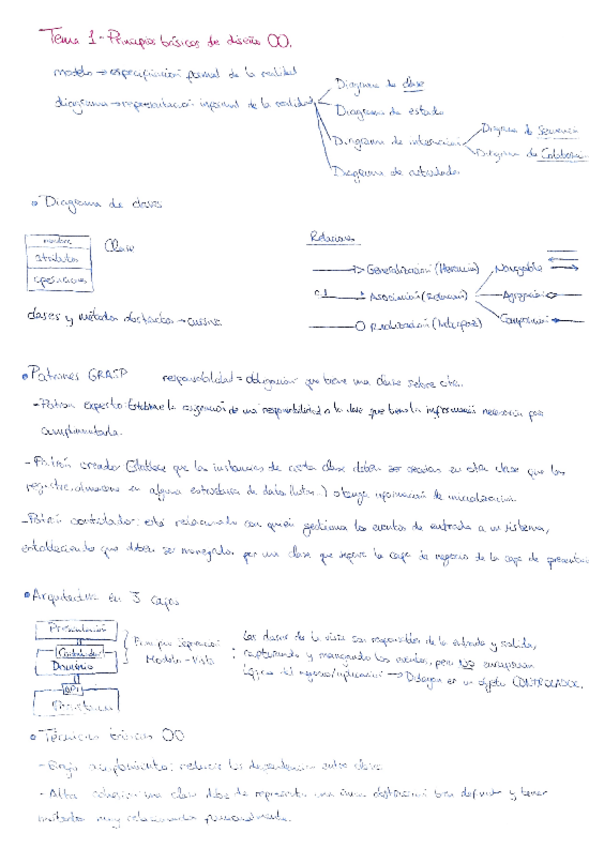 Tema 1 - Principios básicos de diseño OO.
modelo → especificación formal de la realidad
diagrama → representación informal de la realidad
Diagrama de clase
Diagrama de estado
Diagrama de interacción
Diagrama de Secuencia
Diagrama de Colaboración
Diagrama de actividades
• Diagrama de clases
nombre
atributos
operaciones
Clase
Relaciones
Generalización (Herencia)
Asociación (Relación)
Realización (Interfaces)
Navegable
Agregación
Composición
clases y métodos abstractos → cursiva
• Patrones GRASP responsabilidad = obligación que tiene una clase sobre otra.
- Patrón experto: Establece la asignación de una responsabilidad a la clase que tiene la información necesaria para
cumplimentarla.
- Patrón creador: Establece que las instancias de cierta clase deben ser creadas en otra clase que las
registre, almacene en alguna estructura de datos ) o tenga información de inicialización.
- Patrón controlador: está relacionado con quien gestiona los eventos de entrada a un sistema,
estableciendo que deben ser manejados por una clase que separe la capa de negocio de la capa de presentación
• Arquitectura en 3 capas
Presentación
Controlador
Dominio
API
Principio Separación
Modelo - Vista
: Las clases de la vista son responsables de la entrada y salida,
capturando y manejando los eventos, pero NO encapsulan
lógica del negocio/aplicación → Delegan en un objeto CONTROLADOR.
• Técnicas básicas OO
- Bajo acoplamiento: reducir las dependencias entre clases.
- Alta cohesión: una clase debe de representar una única abstracción bien definida y tener
métodos muy relacionados funcionalmente.